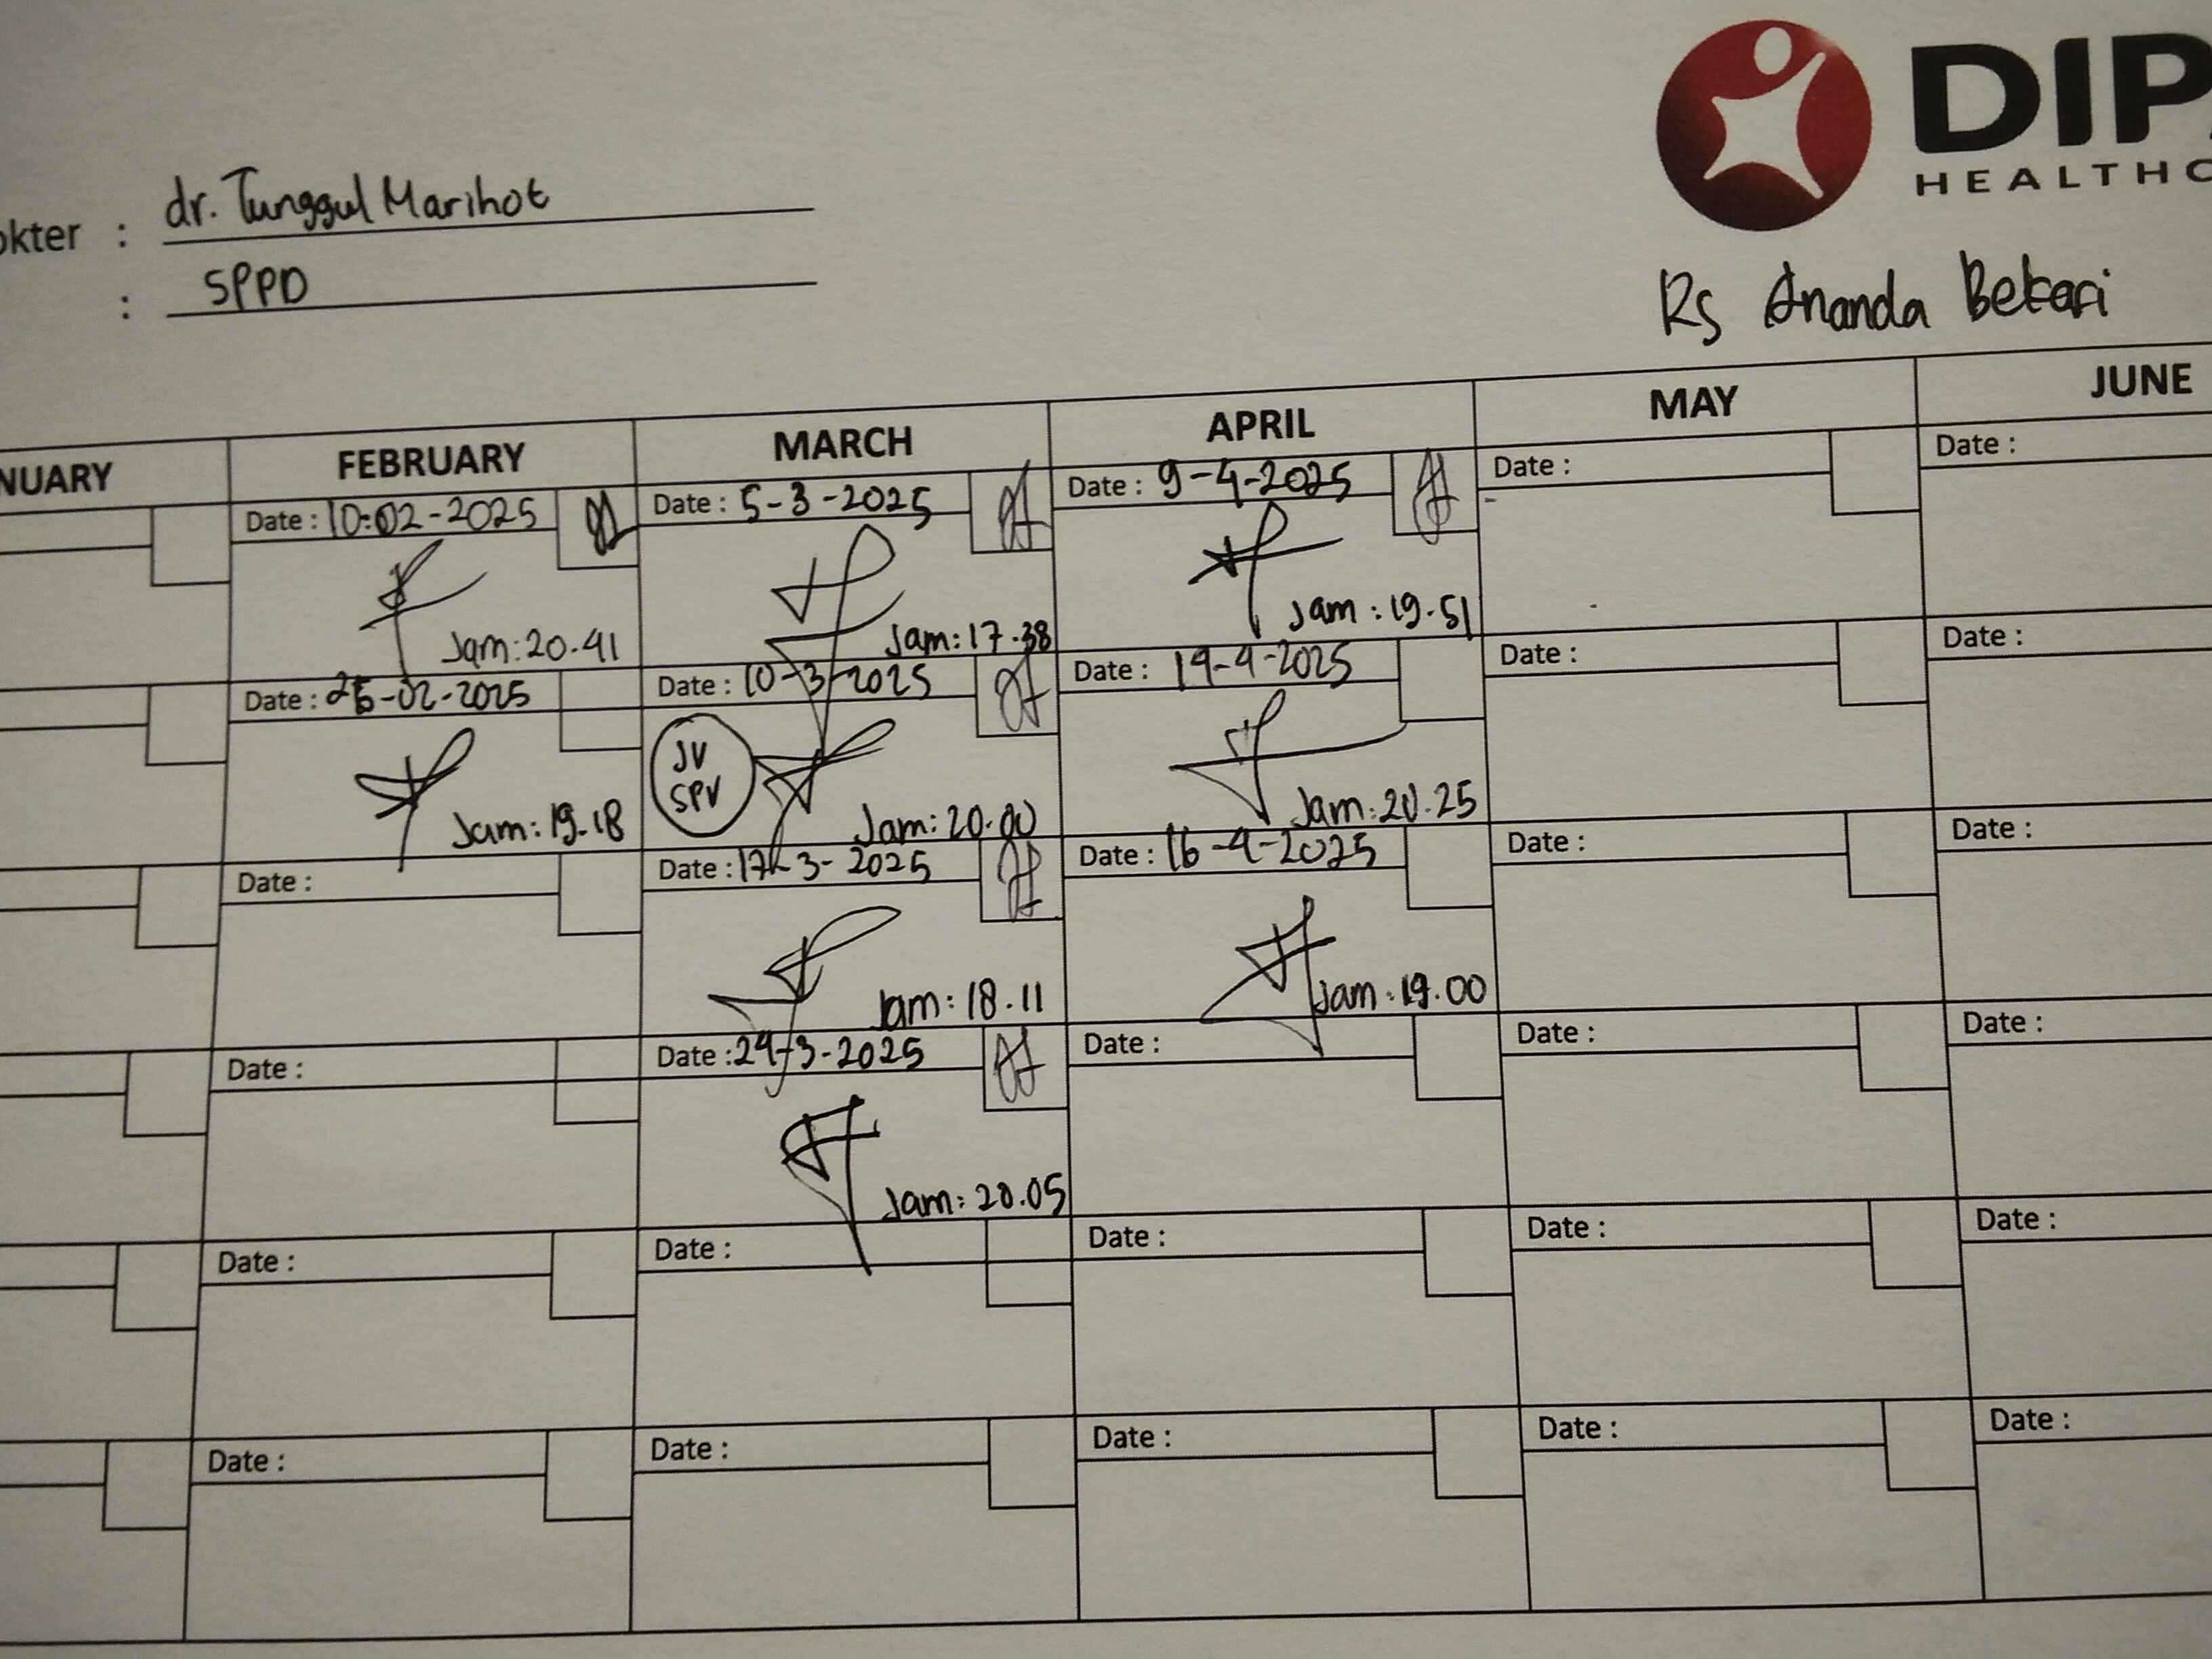 DIP
HEALTHC
okter : dr. Tunggul Marihot
: SPPD
Rs Ananda Bekasi
NUARY FEBRUARY MARCH APRIL MAY JUNE
Date : 10-02-2025 Date : 5-3-2025 Date : 9-4-2025 Date : Date :
Jam: 20.41 Jam: 17.38 Jam: 19.51
Date : 25-02-2025 Date : 10-3-2025 Date : 14-4-2025 Date : Date :
JV
SPV
Jam: 19.18 Jam: 20.00 Jam: 20.25
Date : Date : 17-3-2025 Date : 16-4-2025 Date : Date :
Jam: 18.11 Jam: 19.00
Date : Date : 24-3-2025 Date : Date : Date :
Jam: 20.05
Date : Date : Date : Date : Date :
Date : Date : Date : Date : Date :